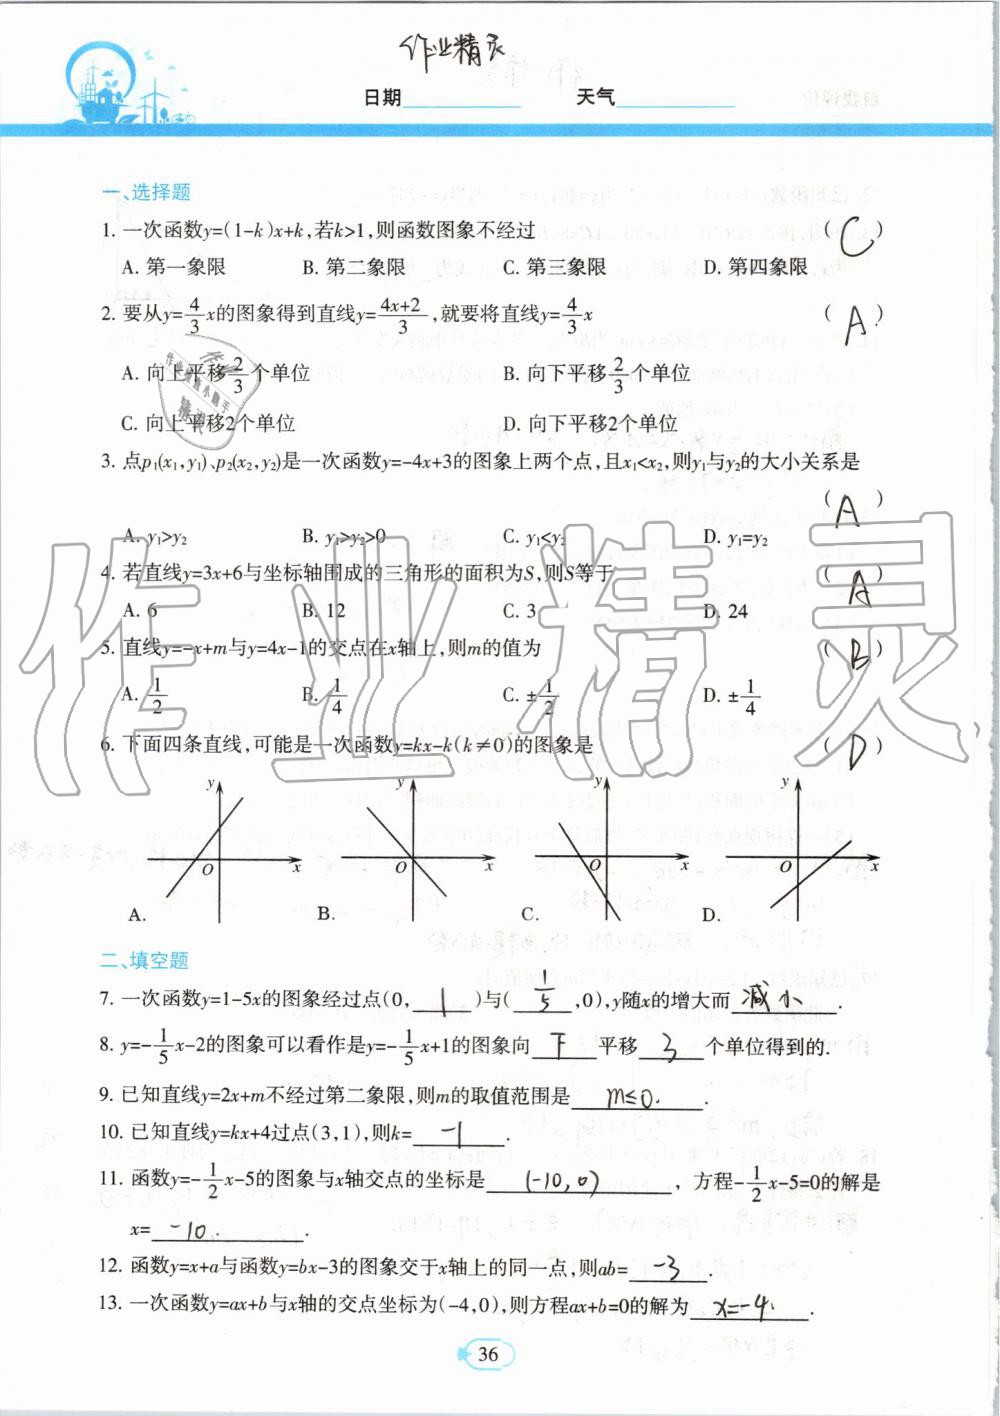 作业精灵
日期 天气
一、选择题
1. 一次函数y=(1-k)x+k,若k>1,则函数图象不经过 ( C )
A. 第一象限 B. 第二象限 C. 第三象限 D. 第四象限
2. 要从y=4/3x的图象得到直线y=(4x+2)/3,就要将直线y=4/3x ( A )
A. 向上平移2/3个单位 B. 向下平移2/3个单位
C. 向上平移2个单位 D. 向下平移2个单位
3. 点p₁(x₁,y₁)、p₂(x₂,y₂)是一次函数y=-4x+3的图象上两个点,且x₁<x₂,则y₁与y₂的大小关系是
( A )
A. y₁>y₂ B. y₁>y₂>0 C. y₁<y₂ D. y₁=y₂
4. 若直线y=3x+6与坐标轴围成的三角形的面积为S,则S等于 ( A )
A. 6 B. 12 C. 3 D. 24
5. 直线y=-x+m与y=4x-1的交点在x轴上,则m的值为 ( B )
A. 1/2 B. 1/4 C. ±1/2 D. ±1/4
6. 下面四条直线,可能是一次函数y=kx-k(k≠0)的图象是 ( D )
y y y y
O x O x O x O x
A. B. C. D.
二、填空题
7. 一次函数y=1-5x的图象经过点(0, 1 )与( 1/5 ,0),y随x的增大而 减小 .
8. y=-1/5x-2的图象可以看作是y=-1/5x+1的图象向 下 平移 3 个单位得到的.
9. 已知直线y=2x+m不经过第二象限,则m的取值范围是 m≤0. .
10. 已知直线y=kx+4过点(3,1),则k= -1 .
11. 函数y=-1/2x-5的图象与x轴交点的坐标是 (-10,0) ,方程-1/2x-5=0的解是
x= -10. .
12. 函数y=x+a与函数y=bx-3的图象交于x轴上的同一点,则ab= -3 .
13. 一次函数y=ax+b与x轴的交点坐标为(-4,0),则方程ax+b=0的解为 x=-4. .
36
作业精灵